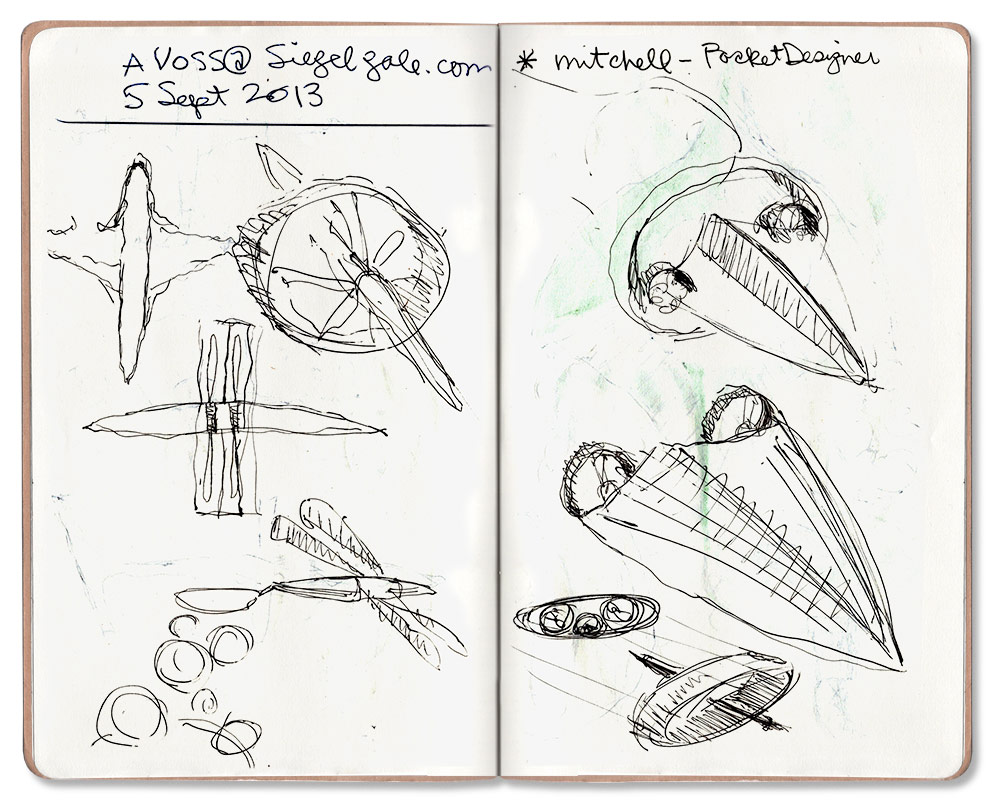 A VOSS@ Siegelgale.com
5 Sept 2013
* mitchell - PocketDesigner